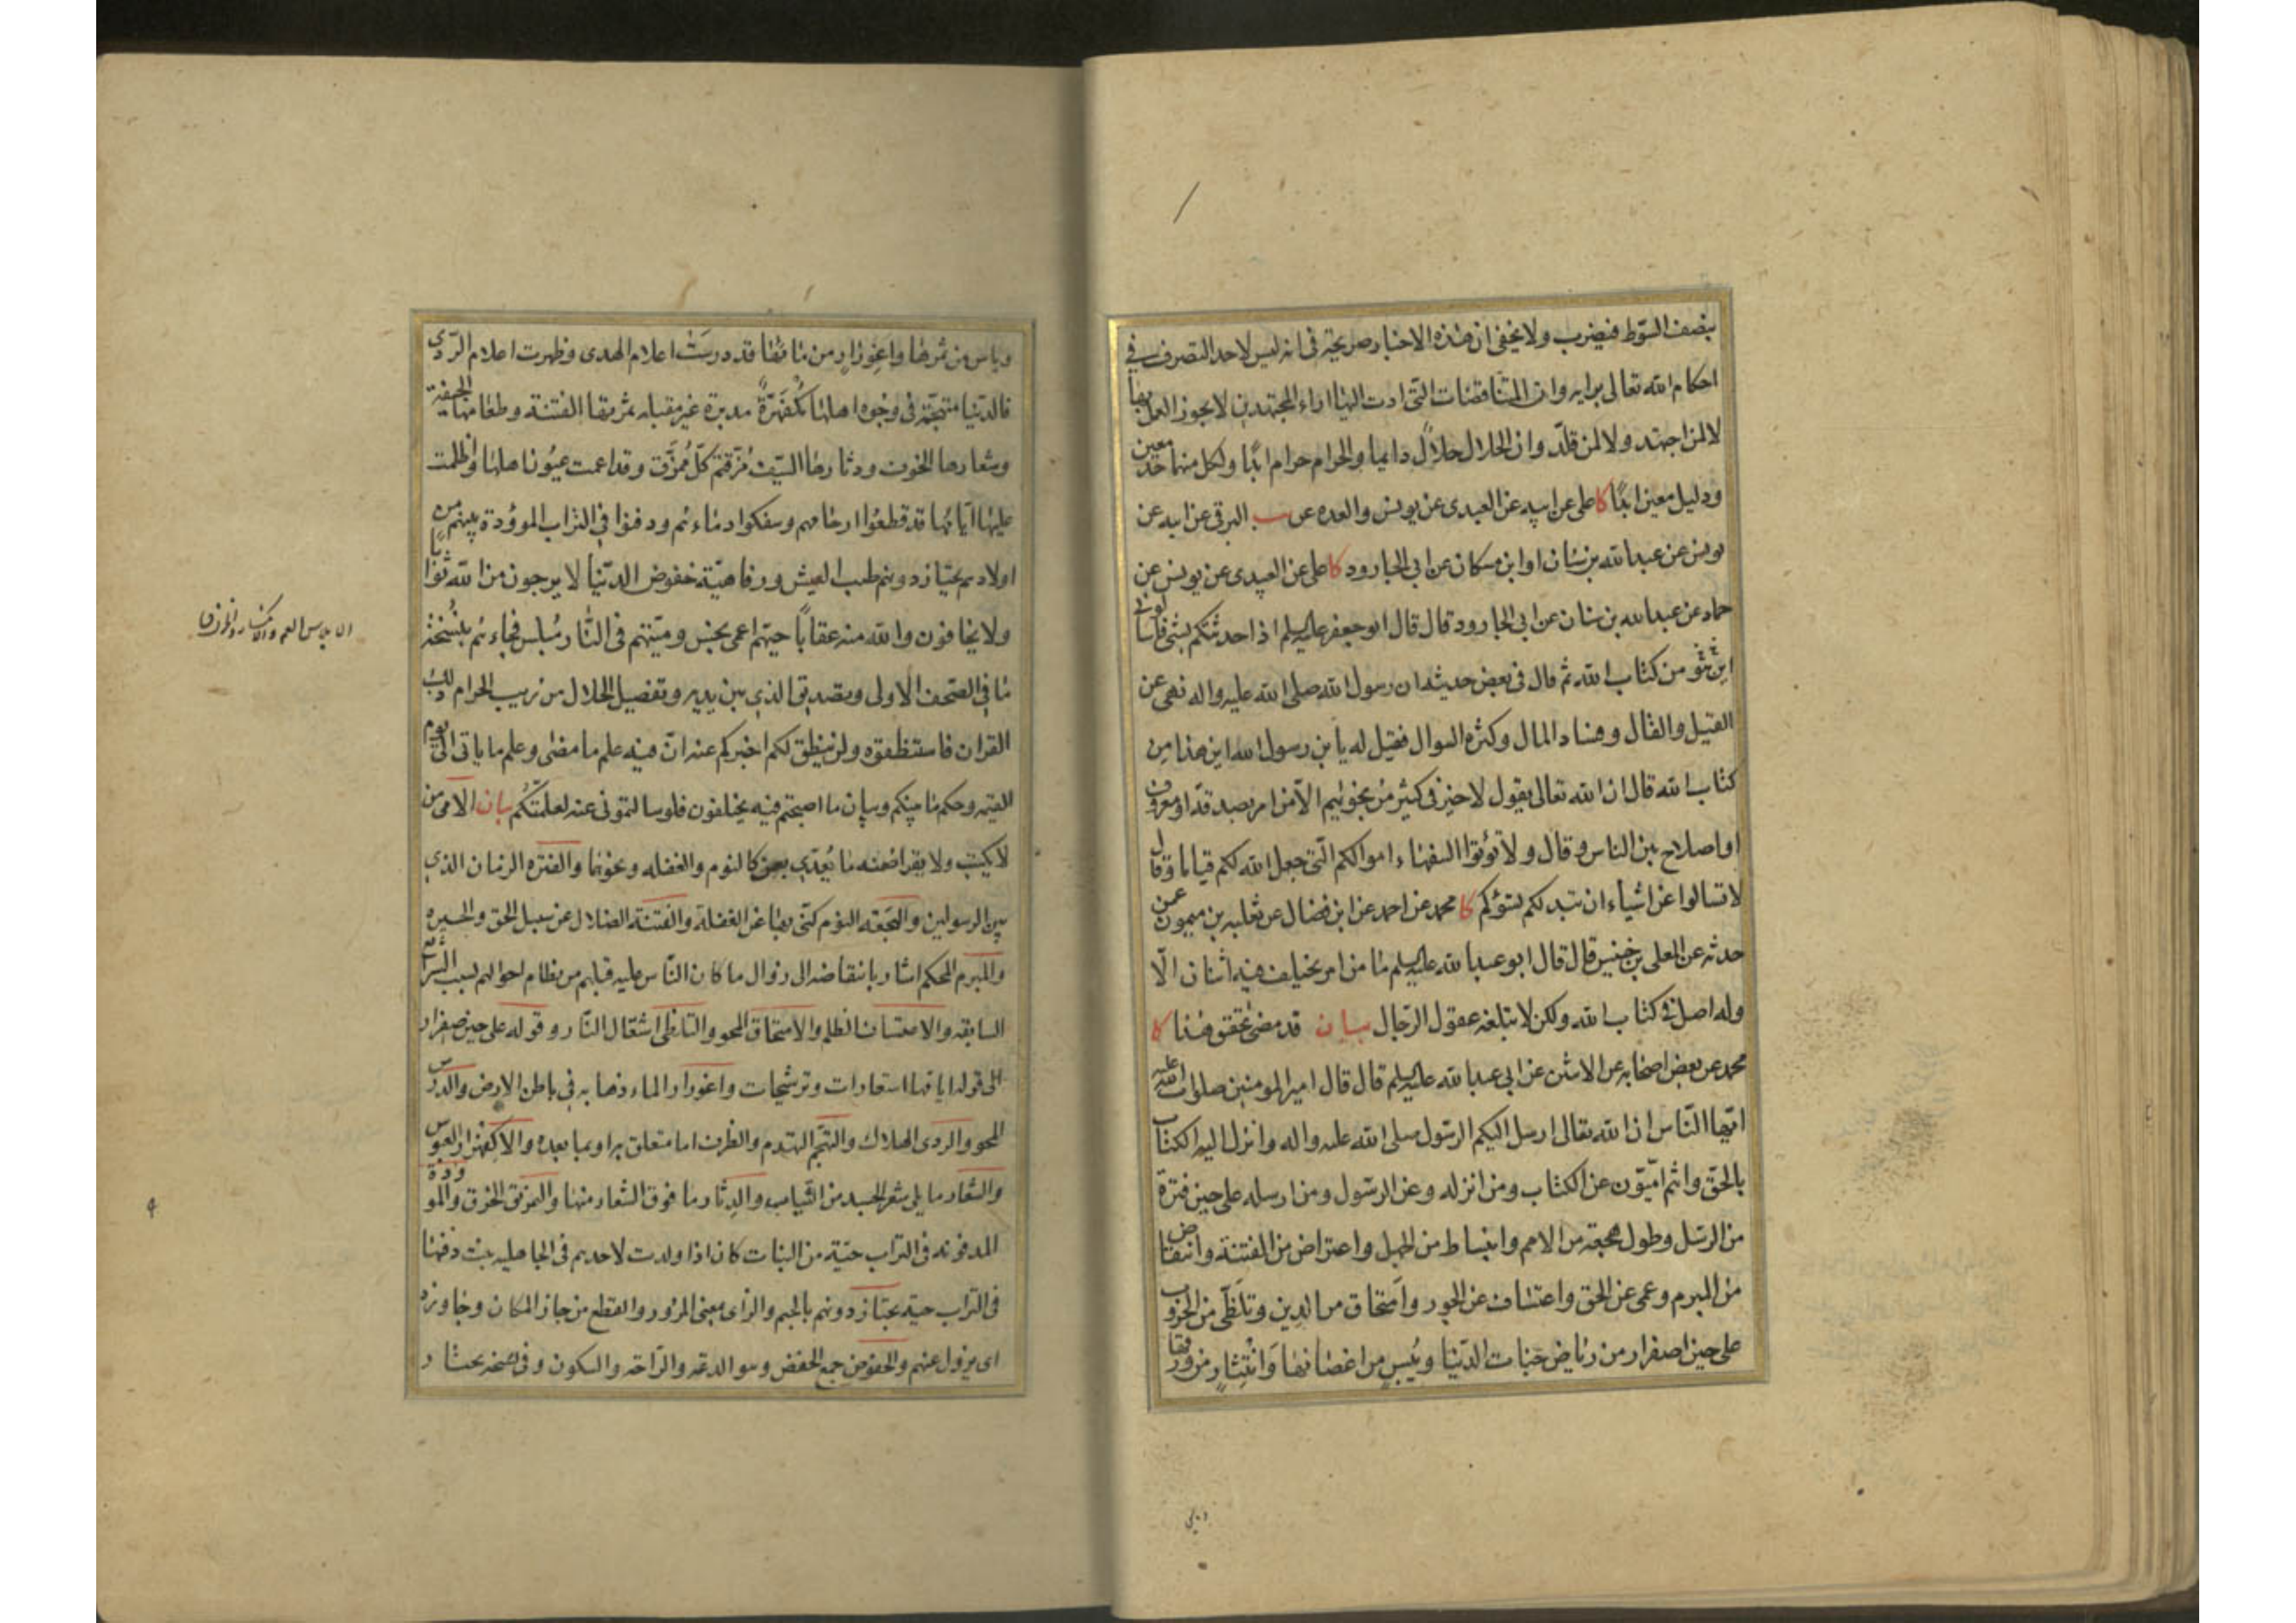 بنصف السّوط فيضرب ولا يخفى ان هذه الاخبار صريحة في انه ليس لاحد التصرف في
احكام الله تعالى برايه وان المتناقضات التي ادت اليها اراء المجتهدين لا يجوز العمل بها
لا لمن اجتهد ولا لمن قلّد وان الحلال حلالٌ دايما والحرام حرام ابدًا ولكل منهما حد معين
ودليل معين ابدًا كا علي عن ابيه عن العبيدى عن يونس والعده عن سب البرقي عن ابيه عن
يونس عن عبد الله بن سنان او ابن مسكان عن ابي الجارود كا علي عن العبيدى عن يونس عن
حماد عن عبد الله بن سنان عن ابي الجارود قال قال ابو جعفر عليه السلم اذا حدثتكم بشئ فاسالوني
اين هو من كتاب الله ثم قال في بعض حديثه ان رسول الله صلى الله عليه واله نهى عن
القيل والقال وفساد المال وكثره السوال فقيل له يا بن رسول الله اين هذا من
كتاب الله قال ان الله تعالى يقول لا خير في كثير من نجويهم الّا من امر بصدقة او معروف
او اصلاح بين الناس وقال ولا تؤتوا السفهاء اموالكم الّتي جعل الله لكم قياما وقال
لا تسالوا عن اشياء ان تبد لكم تسؤكم كا محمد عن احمد عن ابن فضال عن ثعلبه بن ميمون عمن
حدثه عن المعلى بن خنيس قال قال ابو عبد الله عليه السلم ما من امر يختلف فيه اثنان الّا
وله اصل في كتاب الله ولكن لا تبلغه عقول الرّجال بيان قد مضى تحقيق هذا كا
محمد عن بعض اصحابه عن الاثنين عن ابي عبد الله عليه السلم قال قال امير المومنين صلوات الله عليه
ايّها النّاس ان الله تعالى ارسل اليكم الرّسول صلى الله عليه واله وانزل اليه الكتاب
بالحقّ وانتم امّيّون عن الكتاب ومن انزله وعن الرسّول ومن ارسله على حين فترة
من الرسّل وطول هجعة من الامم وانبساط من الجهل واعتراض من الفتنة وانتقاض
من المبرم وعمى عن الحق واعتساف عن الجور وامتحاق من الدين وتلظّى من الحروب
على حين اصفرار من رياض جنات الدّنيا ويُبسٍ من اغصانها وَانْتِثارٍ من ورقها
وياس من ثمرها واغورارٍ من مائها قد درسَتْ اعلام الهدى وظهرت اعلام الرّدى
فالدّنيا متهجّمة في وجوه اهلها مُكْفَهِرَّةٌ مدبرة غير مقبله ثمرتها الفتنة وطعامها الجيفة
وشعارها الخوف ودثارها السّيف مُزّقتم كلّ مُمزَّق وقد اعمت عيون اهلها واظلمت
عليها ايّامها قد قطعُوا ارحامهم وسفكوا دماءهم ودفنوا في التراب الموؤدة بينهم من
اولادهم يجتاز دونهم طيب العيش ورفاهيّة خفوض الدّنيا لا يرجون من الله ثوابا
ولا يخافون والله منه عقابًا حيّهم اعمى نجس وميّتهم في النّار مُبلَس فجاءهم بنُسْخَة
ما في الصّحف الاولى وتصديق الذي بين يديه وتفصيل الحلال من ريب الحرام ذلك
القران فاستنطقوه ولن ينطق لكم اخبركم عنه انّ فيه علم ما مضى وعلم ما ياتى الى يوم
القيمة وحكم ما بينكم وبيان ما اصبحتم فيه يختلفون فلو سالتمونى عنه لعلّمتُكُم بيان الامى من
لا يكتب ولا يقرا ضمنه ما يُعدّى بعن كالنوم والغفله ونحوهما والفتره الزمان الذى
بين الرسولين والهَجعَه النوم كنّى بها عن الغفلة والفتنة الضلال عن سبيل الحق والحيره
والمبرم المحكم اشار بانتقاضه الى زوال ما كان النّاس عليه قبلهم من نظام احوالهم بسبب الشرائع
السابقه والاعتساف الظلم والامتحاق المحو والتلظى اشتعال النّار وقوله على حين اصفرار
الى قوله ايامها استعارات وترشيحات واغورار الماء ذهابه في باطن الارض والدّرس
المحو والردى الهلاك والتهجّم التهدم والظرف اما متعلق به او بما بعده والاكفهرار العبوس
والشعار ما يلى شعر الجسد من الثياب والدِثار ما فوق الشعار منها والتمزيق الخرق والموودة
المدفونه في التراب حيّة من البنات كان اذا ولدت لاحدهم في الجاهليه بنت دفنها
في التراب حيّه يجتاز دونهم بالجيم والزاى بمعنى المرور والقطع من جاز المكان وجاوزه
اى يزول عنهم والخفوض جمع الخفض وهو الدعه والرّاحه والسكون وفى نسخه يحتار